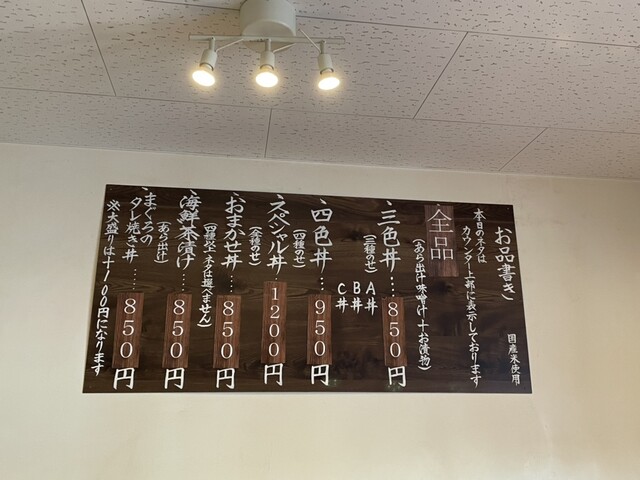 お品書き
国産米使用
本日のネタは
カウンター上部に表示しております
全品
(あら出汁味噌汁+お漬物)
三色丼…850円
(三種のせ)
A丼
B丼
C丼
四色丼…950円
(四種のせ)
スペシャル丼…1200円
(全種のせ)
おまかせ丼…850円
(四種以上・ネタは選べません)
海鮮茶漬け…850円
(あら出汁)
まぐろの
タレ焼き丼…850円
※大盛りは+100円になります